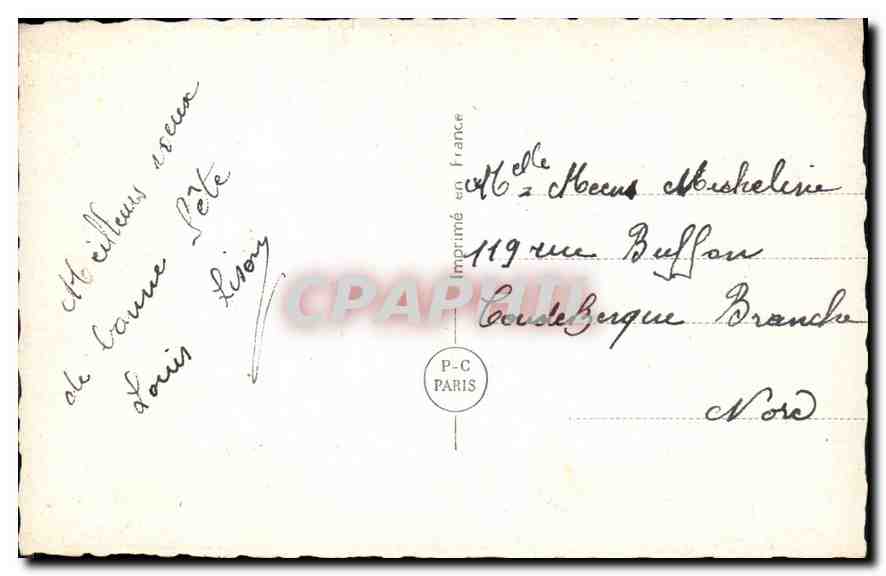 Meilleurs vœux
de bonne fête
Louis Lison
Imprimé en France
P-C
PARIS
Melle Meens Micheline
119 rue Buffon
Coudekerque Branche
Nord
CPAPHIL